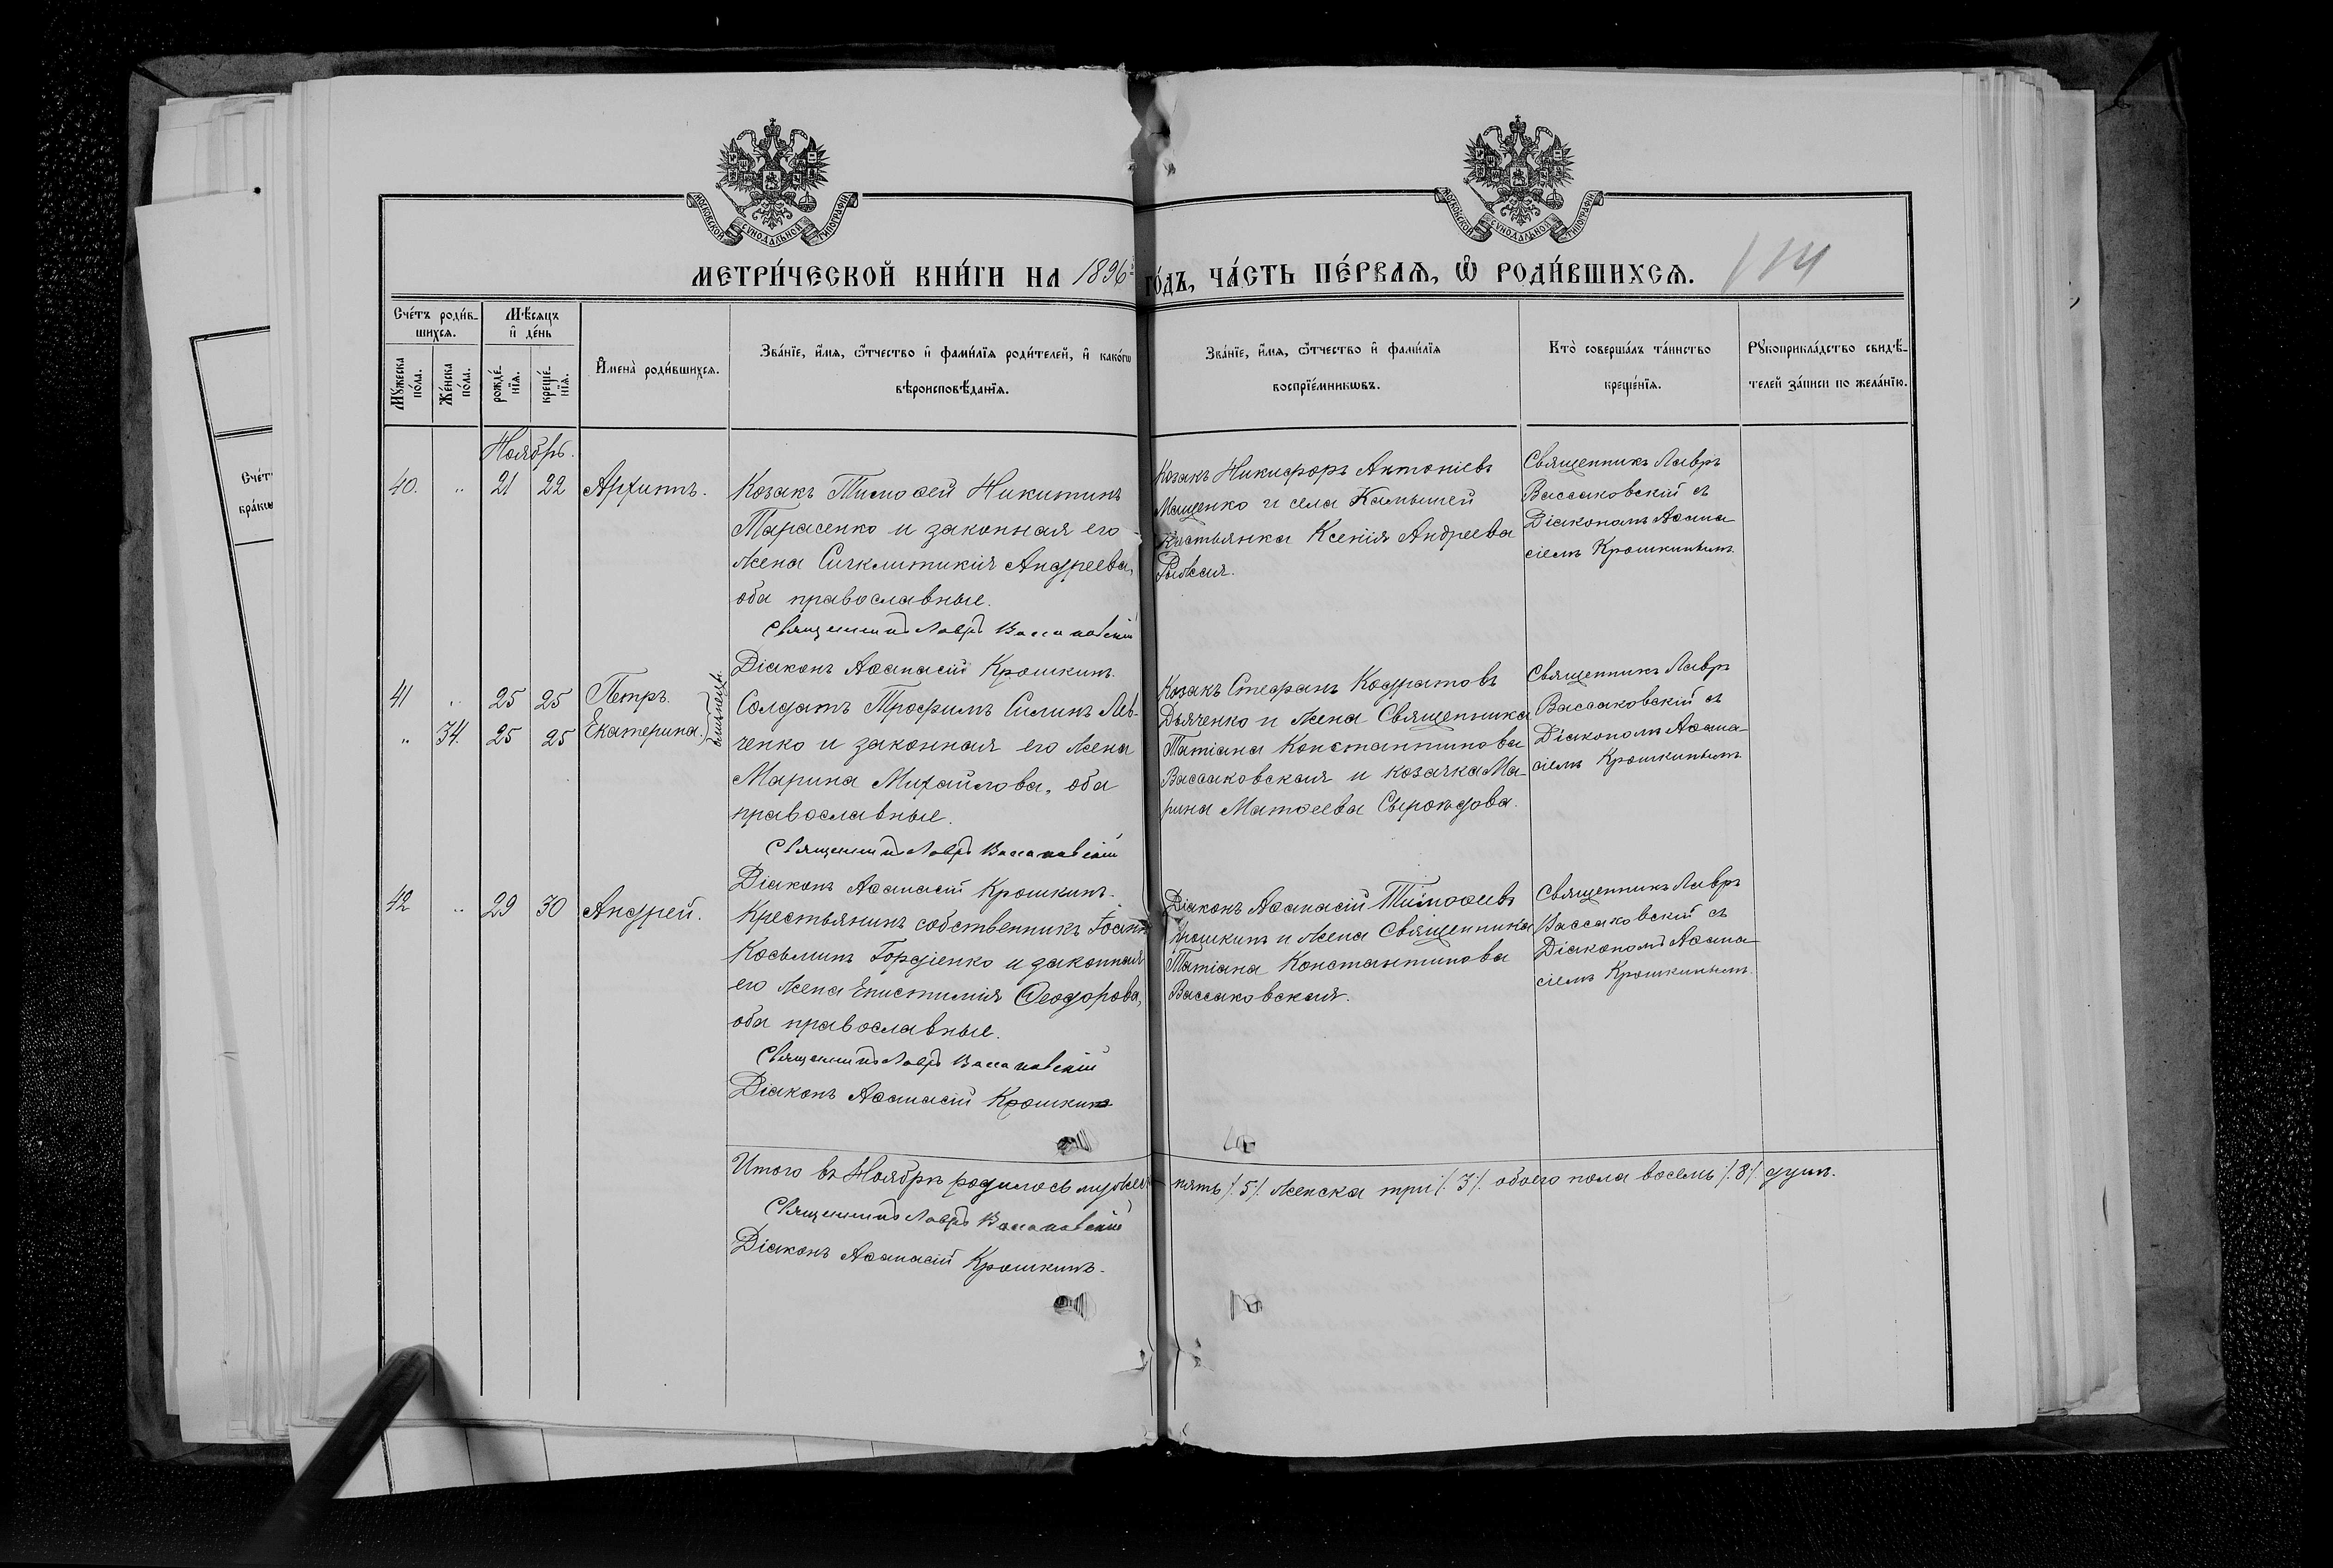 МОСКОВСКОЙ СУНОДАЛЬНОЙ ТИПОГРАФІИ
МОСКОВСКОЙ СУНОДАЛЬНОЙ ТИПОГРАФІИ
МЕТРИ́ЧЕСКОЙ КНИ́ГИ НА 1896й ГО́ДЪ, ЧА́СТЬ ПЕ́РВАѦ, Ѡ҆ РОДИ́ВШИХСѦ.
114
Сче́тъ роди́в-
шихсѧ.
Мѣ́сѧцъ
и҆ де́нь
Мꙋ́жеска
по́ла.
Же́нска
по́ла.
рожде́-
нїѧ.
креще́-
нїѧ.
И҆мена̀ роди́вшихсѧ.
Зва́нїе, и҆́мѧ, ѻ҆́тчество и҆ фами́лїѧ роди́телей, и҆ како́гѡ
вѣроисповѣ́данїѧ.
Зва́нїе, и҆́мѧ, ѻ҆́тчество и҆ фами́лїѧ
воспрїе́мникѡвъ.
Кто̀ соверша́лъ та́инство
креще́нїѧ.
Рꙋкоприкла́дство свидѣ́-
телей за́писи по жела́нїю.
Счет
кра́ко
Ноябрь.
40. „ 21 22 Архиппъ.
Козакъ Тимоѳей Никитинъ
Тарасенко и законная его
жена Сигклитикія Андреева,
оба православные.
Священникъ Лавръ Вассаковскій
Діаконъ Аѳанасій Крошкинъ.
Козакъ Никифоръ Антоніевъ
Мащенко и села Камышей
Ксенія Андреева
Рыжая.
Священникъ Лавръ
Вассаковскій съ
Діакономъ Аѳана-
сіемъ Крошкинымъ.
41 „ 25 25 Петръ.
„ 34. 25 25 Екатерина.
близнецы.
Солдатъ Трофимъ Силинъ Лев-
ченко и законная его жена
Марина Михайлова, оба
православные.
Священникъ Лавръ Вассаковскій
Діаконъ Аѳанасій Крошкинъ.
Козакъ Стефанъ Кодратовъ
Дьяченко и жена Священника
Татіана Константинова
Вассаковская и козачка Ма-
рина Матѳеева Сыроѣдова.
Священникъ Лавръ
Вассаковскій съ
Діакономъ Аѳана-
сіемъ Крошкинымъ
42 „ 29 30 Андрей.
Крестьянинъ собственникъ Іоаннъ
Косьминъ Гордіенко и законная
его жена Епистимія Ѳеодорова,
оба православные.
Священникъ Лавръ Вассаковскій
Діаконъ Аѳанасій Крошкинъ
Діаконъ Аѳанасій Тимоѳеевъ
Крошкинъ и жена Священника
Татіана Константинова
Вассаковская.
Священникъ Лавръ
Вассаковскій съ
Діакономъ Аѳана-
сіемъ Крошкинымъ.
Итого въ Ноябрѣ родилось мужеск. пять /.5/. женска три /.3/. обоего пола восемь /.8/. душъ.
Священникъ Лавръ Вассаковскій
Діаконъ Аѳанасій Крошкинъ.